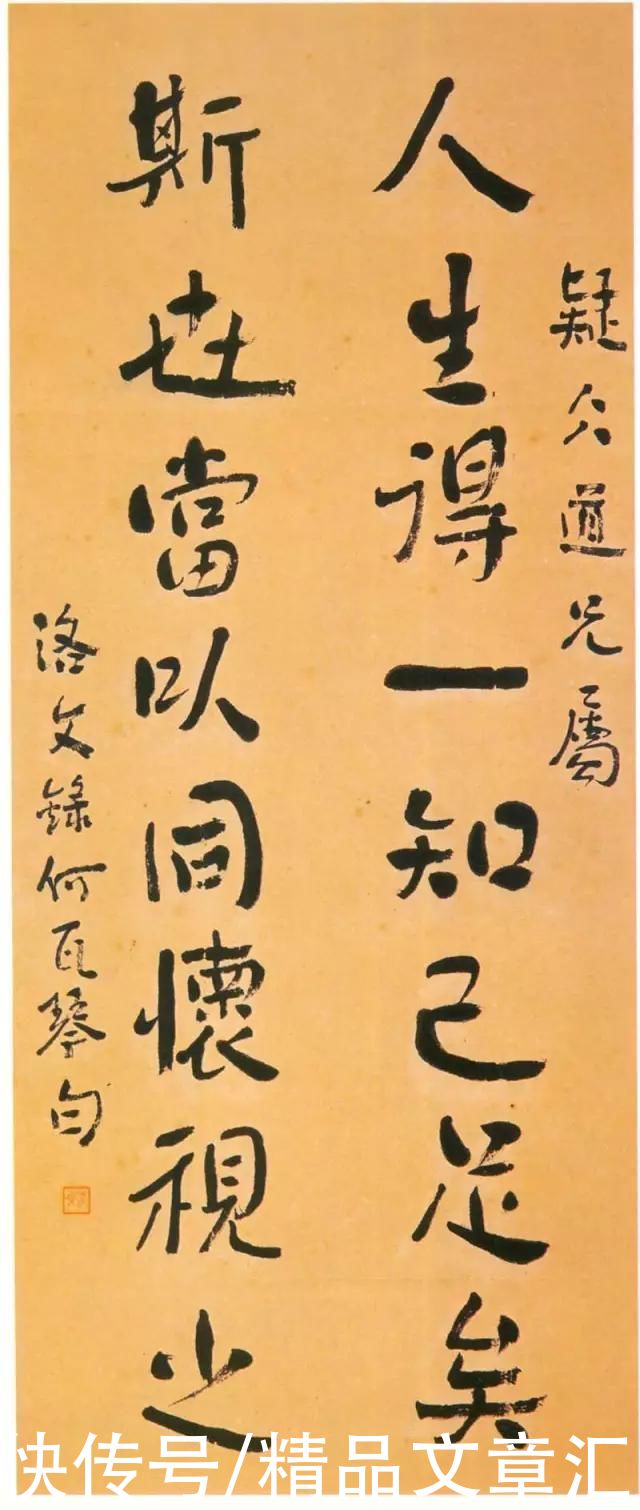 疑仌道兄屬
人生得一知己足矣
斯世當以同懷視之
洛文錄何瓦琴句
快传号/精品文章汇